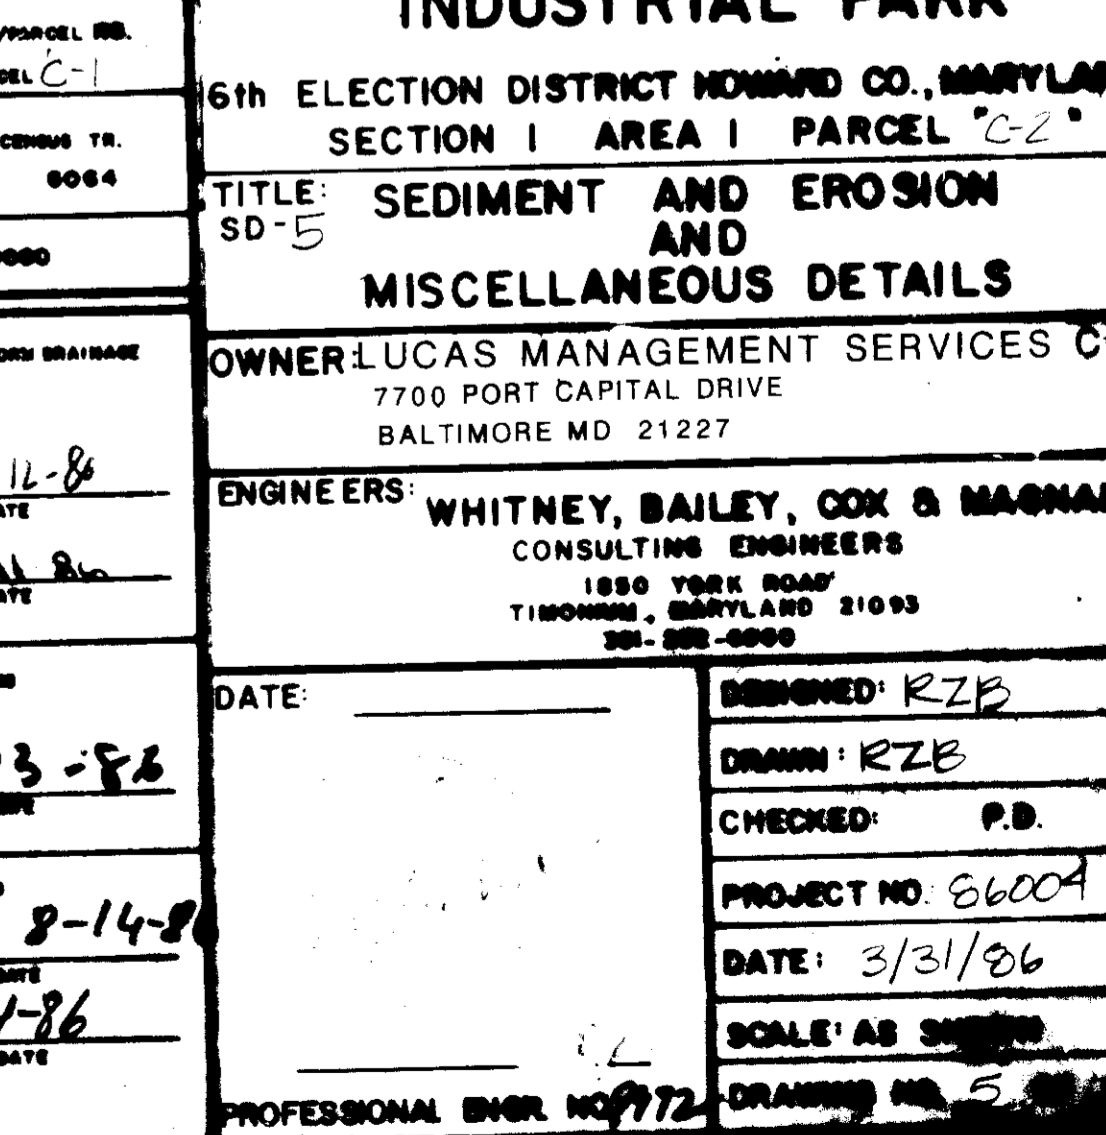 /PARCEL NO.
CEL C-1
CENSUS TR.
6064
STORM DRAINAGE
12-86
ATE
86
ATE
3-86
8-14-86
DATE
-86
DATE
INDUSTRIAL PARK
6th ELECTION DISTRICT HOWARD CO., MARYLA
SECTION 1 AREA 1 PARCEL "C-2"
TITLE: SEDIMENT AND EROSION
SD-5 AND
MISCELLANEOUS DETAILS
OWNER: LUCAS MANAGEMENT SERVICES C
7700 PORT CAPITAL DRIVE
BALTIMORE MD 21227
ENGINEERS: WHITNEY, BAILEY, COX & MAGNA
CONSULTING ENGINEERS
1850 YORK ROAD
TIMONIUM, MARYLAND 21093
DATE:
PROFESSIONAL ENGR. NO. 9972
DESIGNED: RZB
DRAWN: RZB
CHECKED: P.D.
PROJECT NO. 86004
DATE: 3/31/86
SCALE: AS SHOWN
DRAWING NO. 5